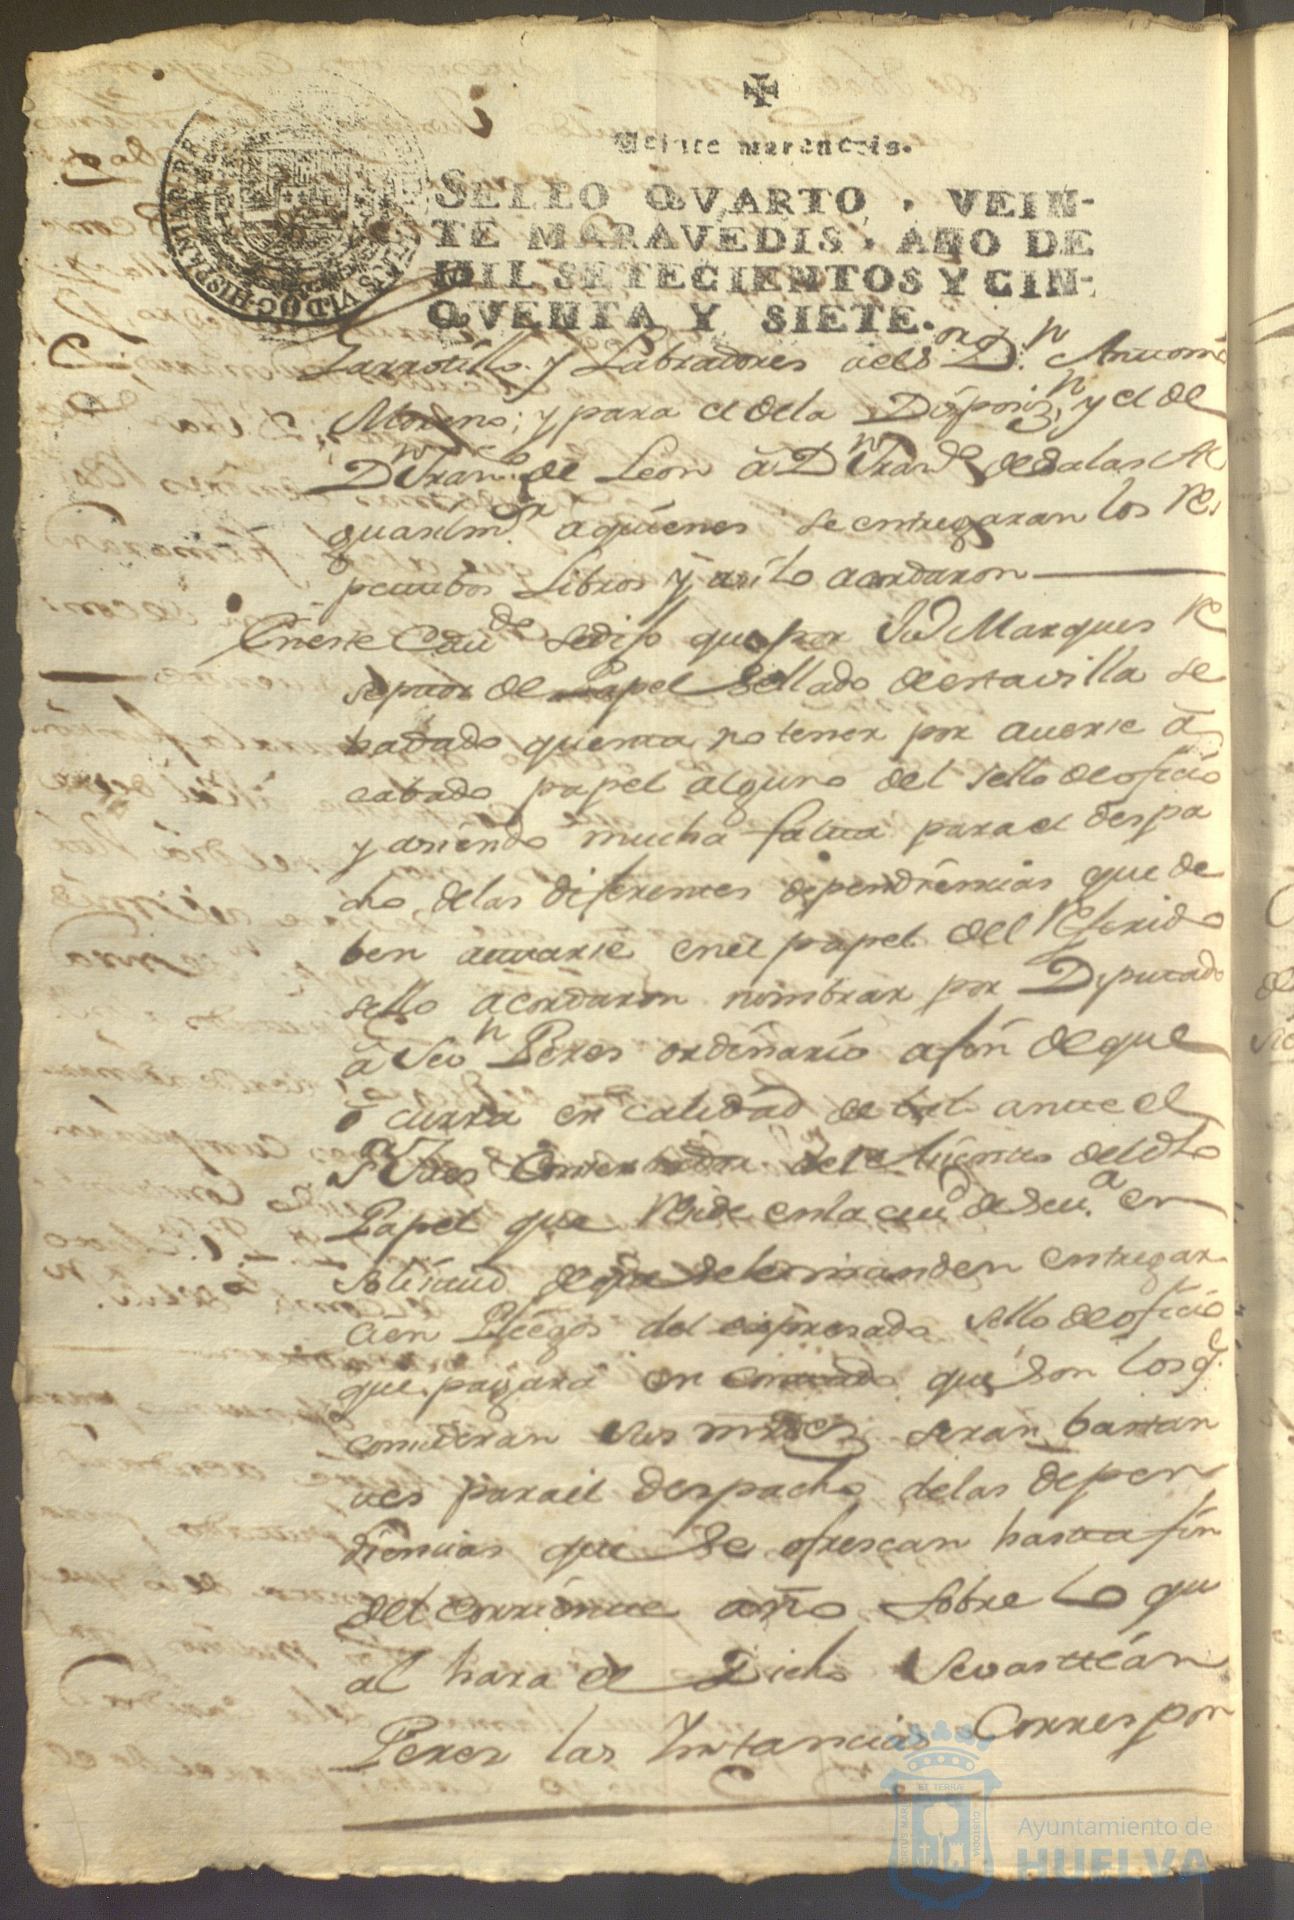 Veinte maravedis.
SELLO QVARTO, VEIN-
TE MARAVEDIS, AÑO DE
MIL SETECIENTOS Y CIN-
QVENTA Y SIETE.
HISPANIAR
Jarrotillo y Labradores del Sor Dn Antonio
Moreno; y para el dela Dispozn, y el de
Dn Franco de Leon â Dn Franco de Salas Al
guasilmor aquienes se entregaran los Res
pectibos Libros y asilo acordaron
Eneste Cavdo sedijo que por Marques Re
septor de Papel Sellado destavilla se
hadado quenta no tener por averse â
cabado papel alguno del sello de oficio
y asiendo mucha falta parael despa
cho delas diferentes dependiencias que de
ben actuarse enel papel del Referido
sello acordaron nombrar por Diputado
â Sevn Peres ordinario afin deque
ôcurra en calidad de tal anteel
Sor Jues Conserbador de Rs del dho
Papel que Reside enla ciud de Seva en
solisitud deque manden entregar
cien Pliegos del expresado sello de oficio
que pagara en contado que son los q.
consideran sus mrdes seran bastan
tes parael despacho delas depen
diencias que se ofrescan hasta fin
del corriente año sobre lo qu
al hara el Dicho Sevastian
Peres las Instancias Correspon
Ayuntamiento de
HUELVA